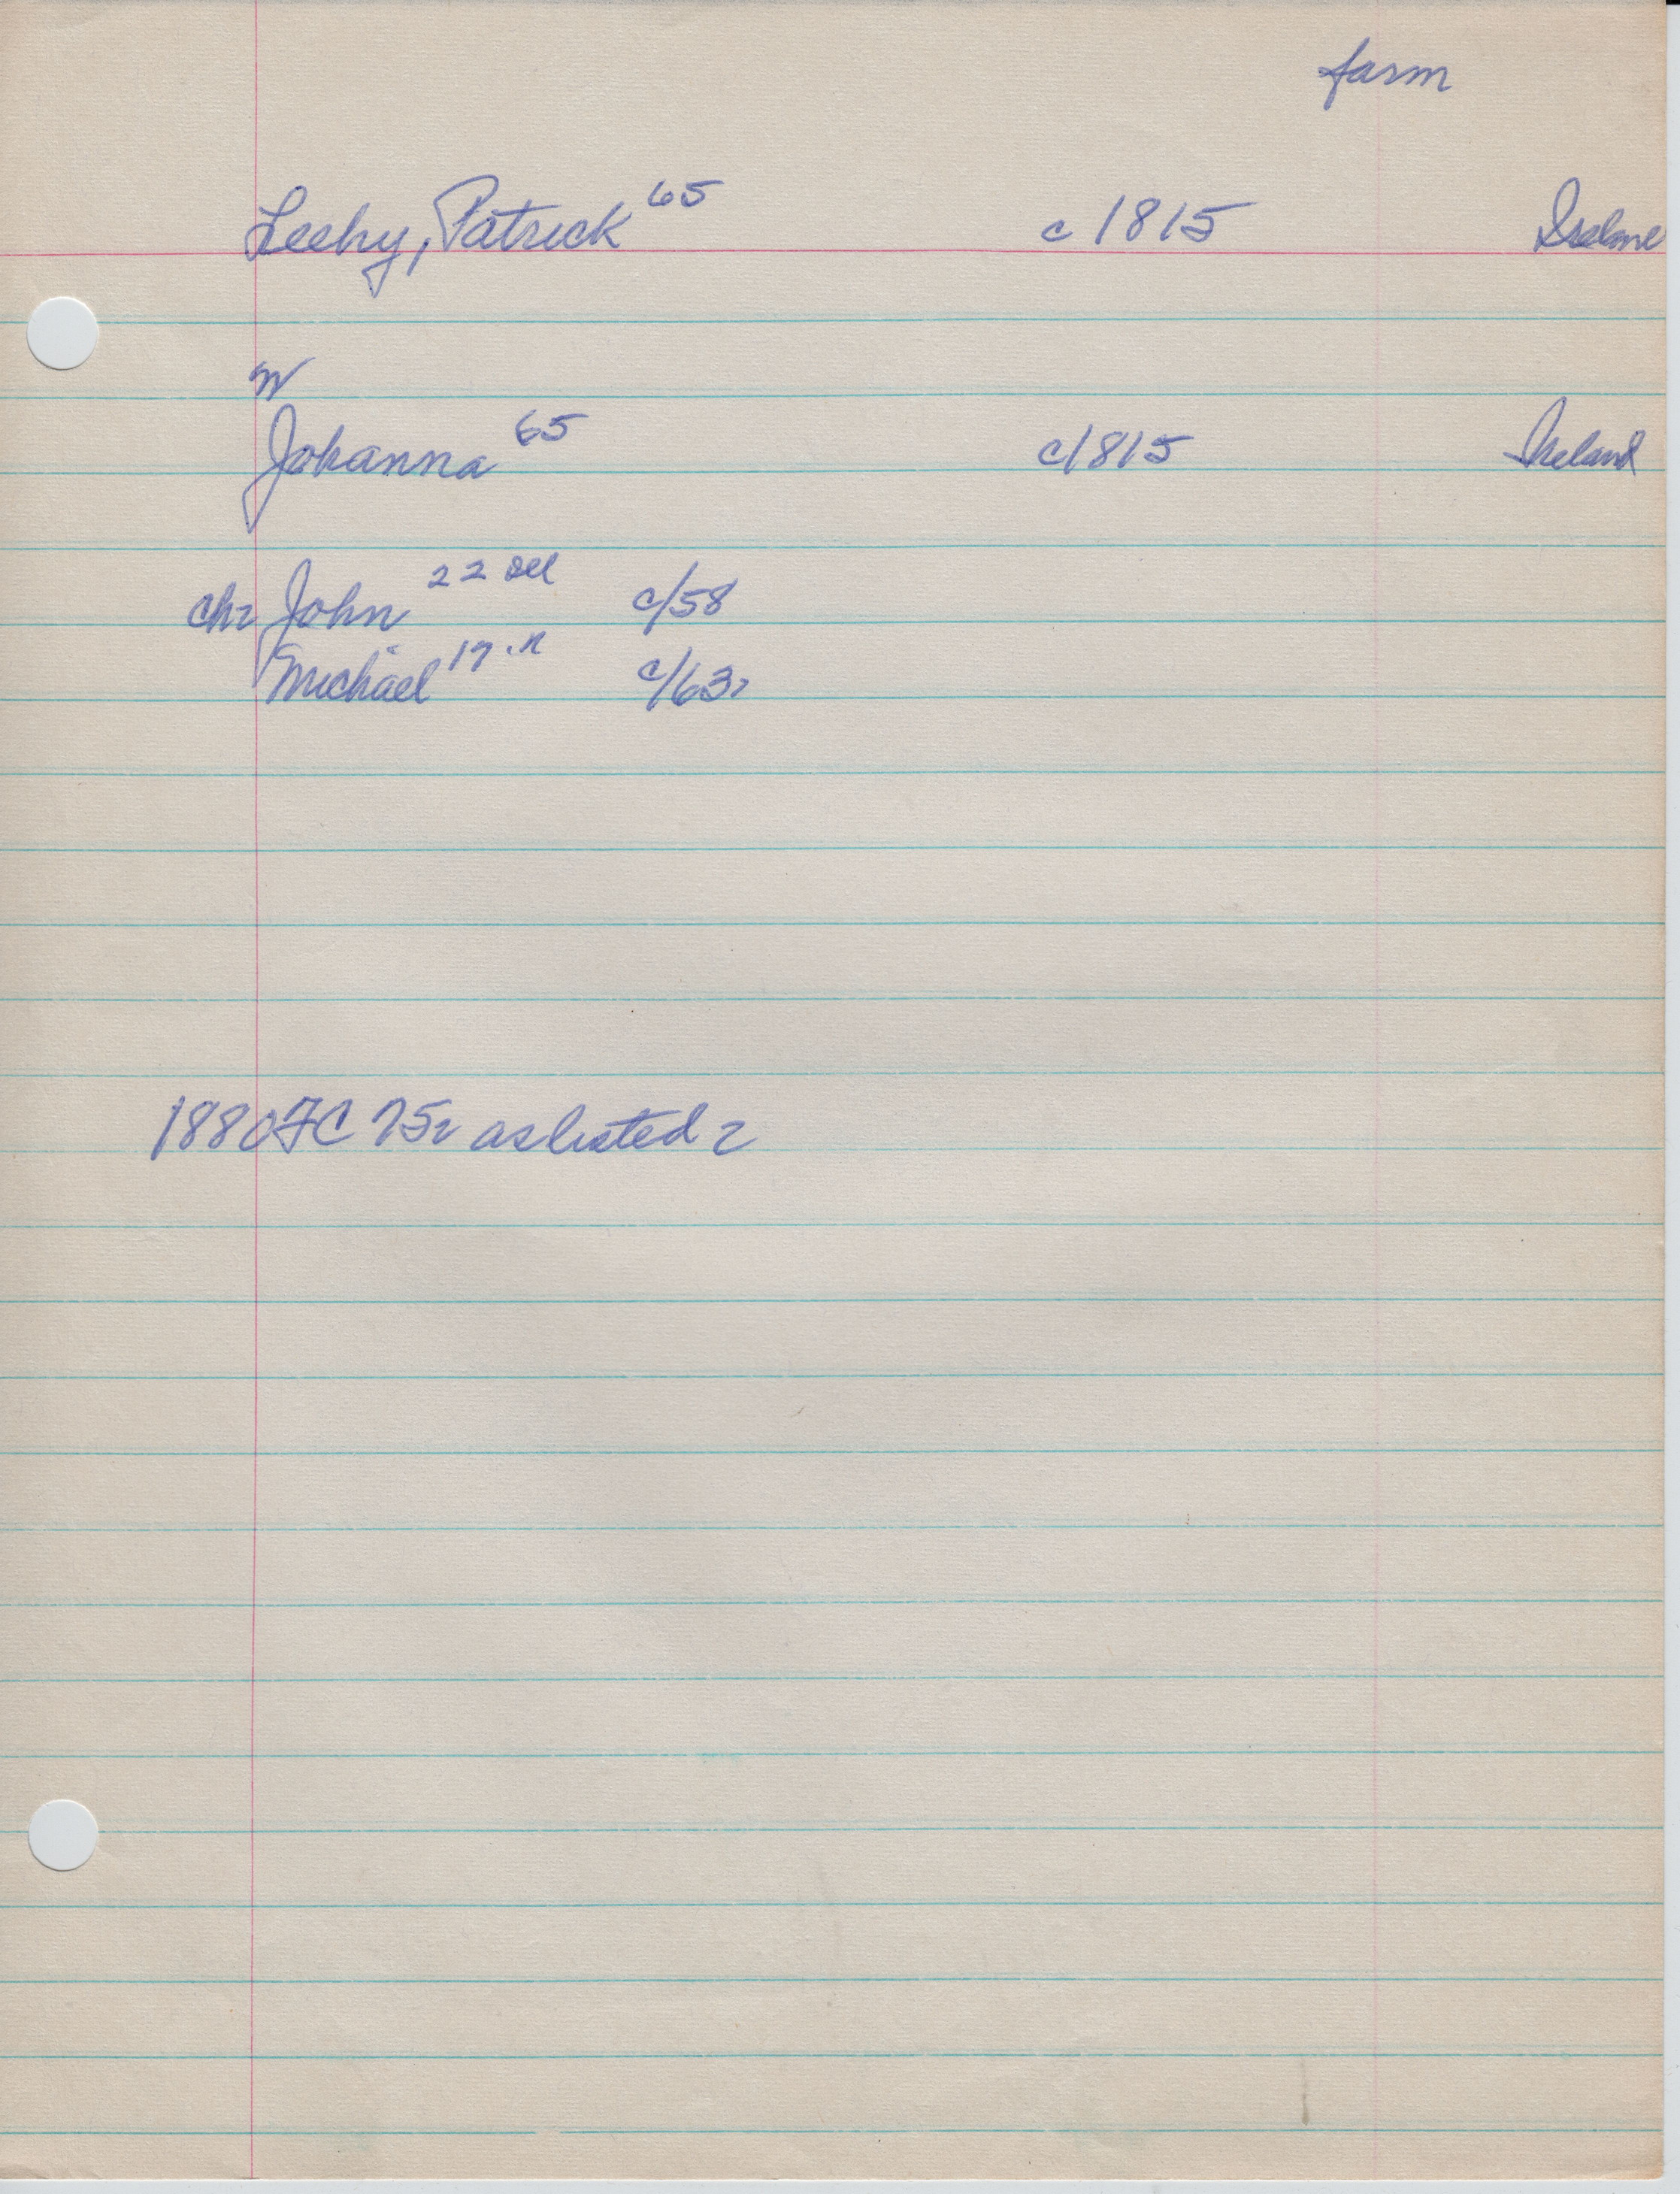 farm
Leehy, Patrick 65 c 1815 Ireland
w
Johanna 65 c1815 Ireland
chr John 22 Ill c/58
Michael 17 " c/63
1880 FC 75 as listed